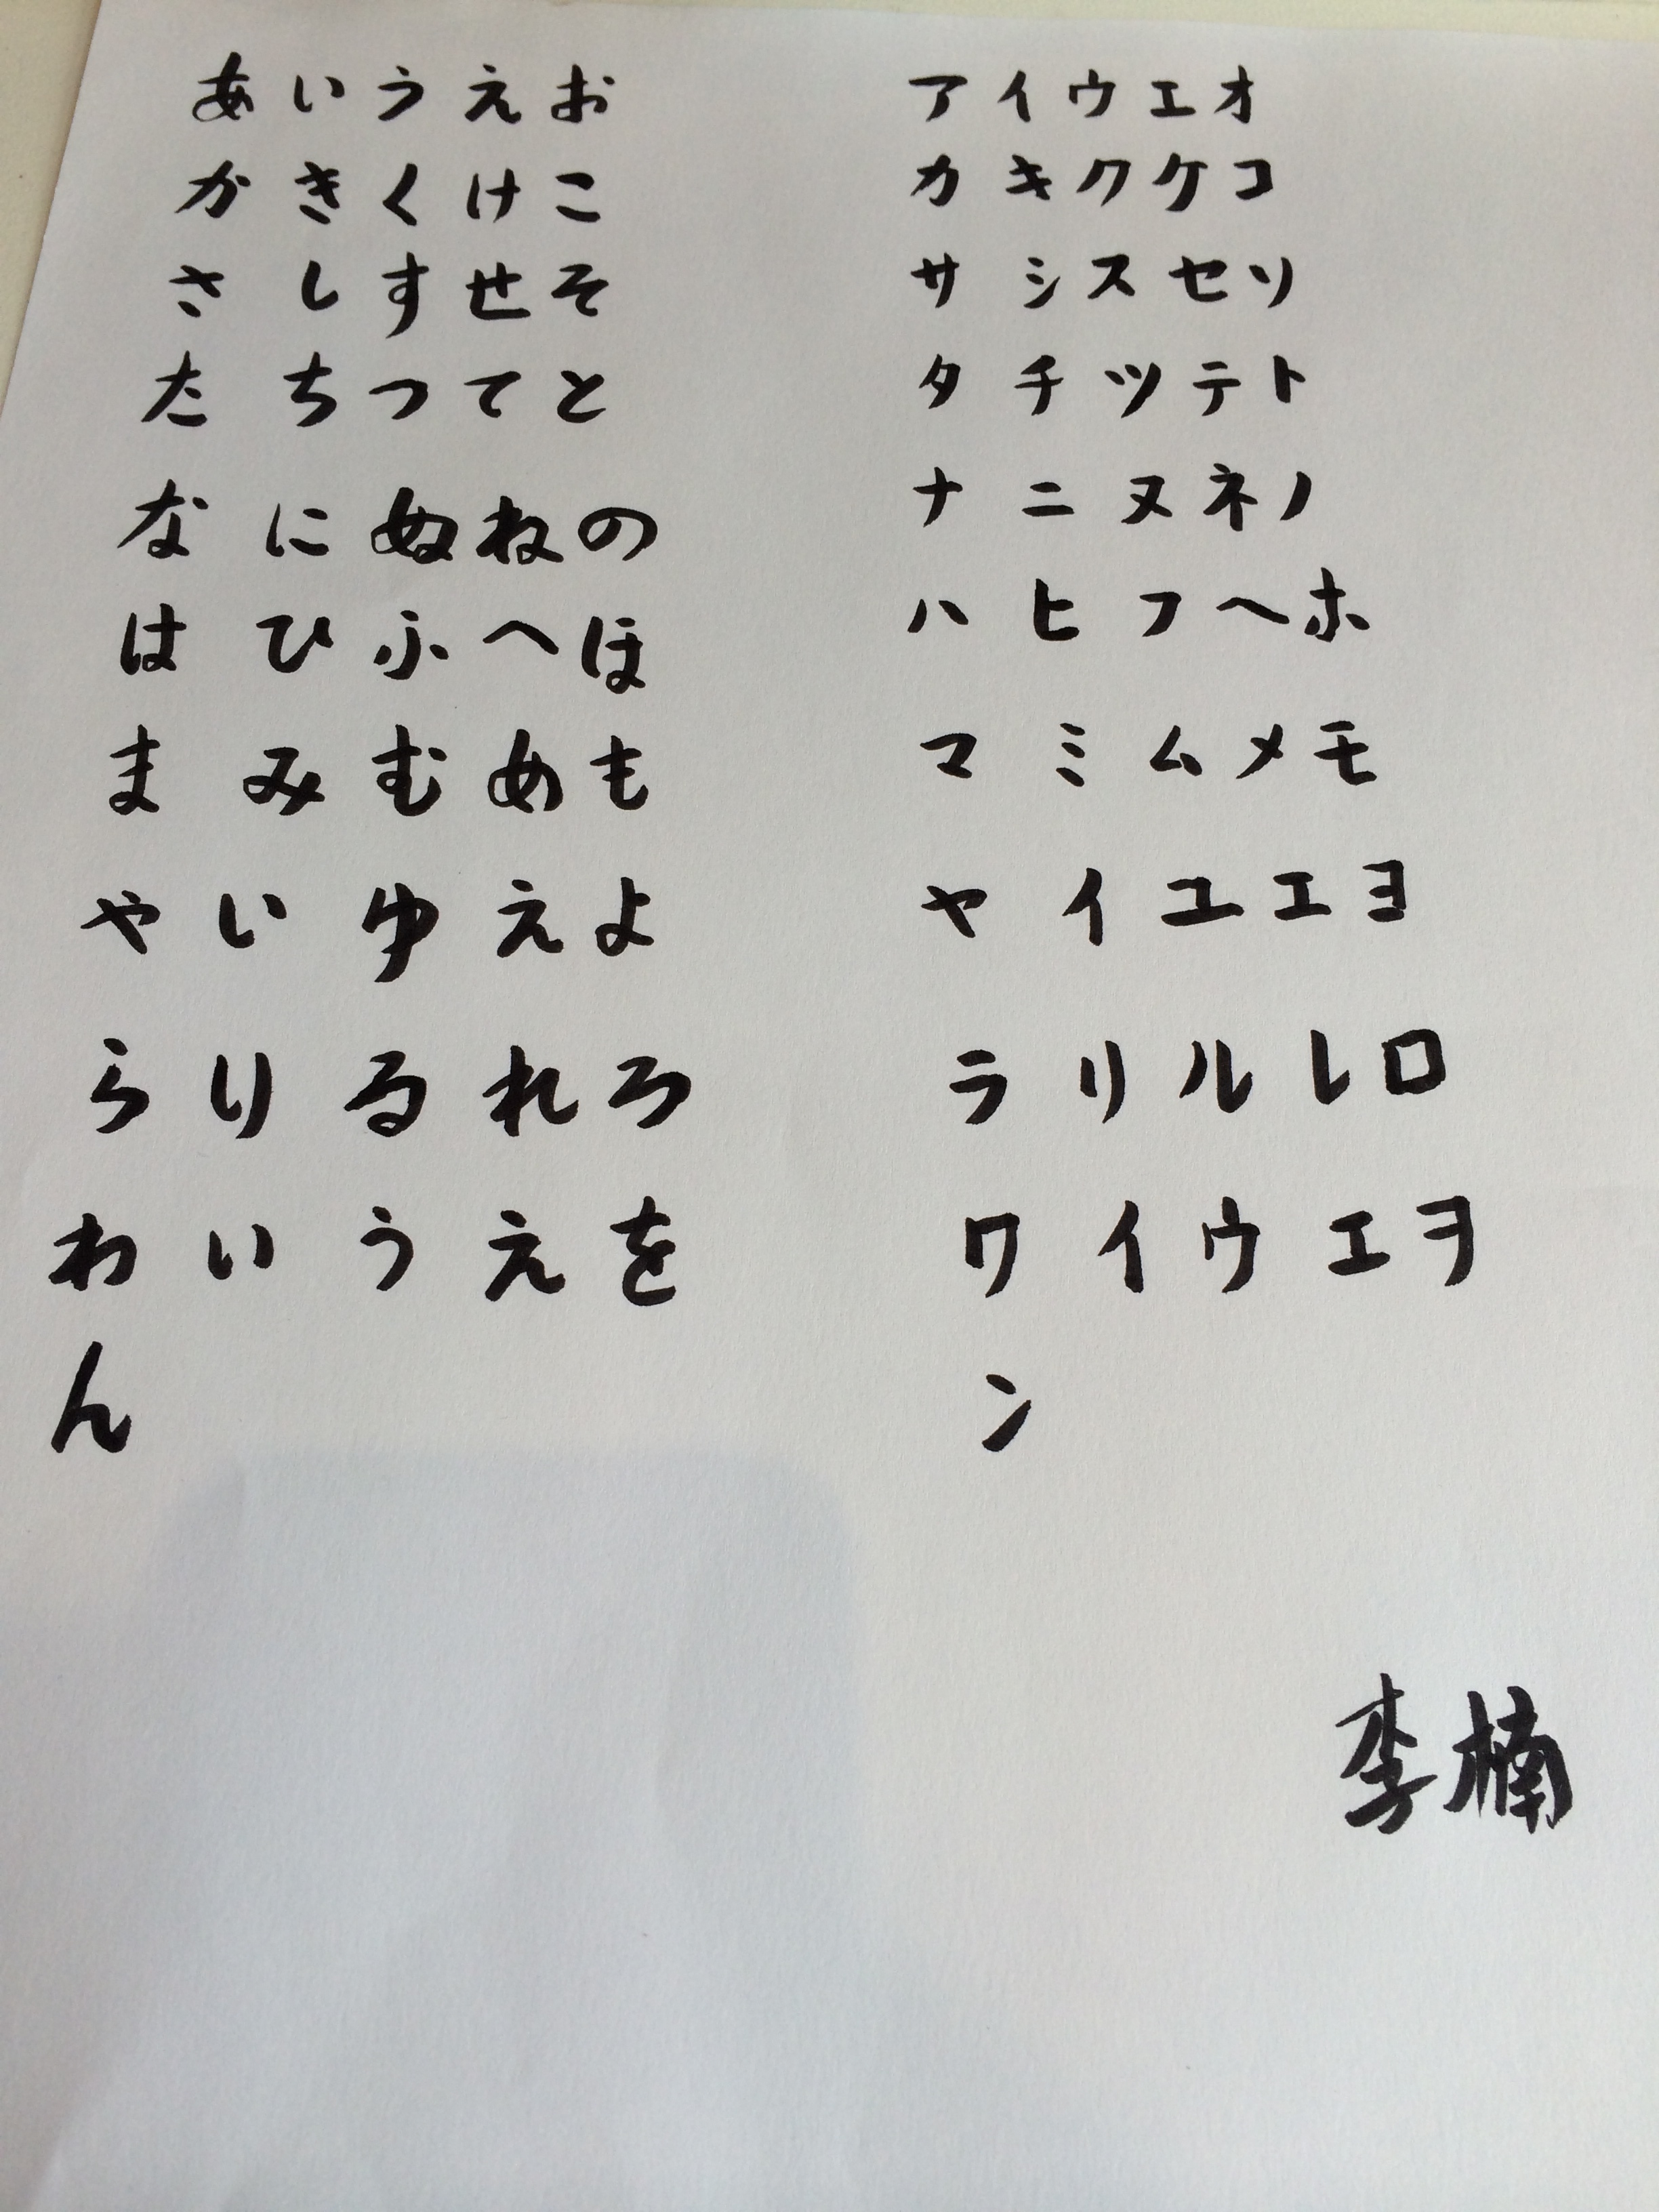 あいうえお アイウエオ
かきくけこ カキクケコ
さしすせそ サシスセソ
たちつてと タチツテト
なにぬねの ナニヌネノ
はひふへほ ハヒフヘホ
まみむめも マミムメモ
やいゆえよ ヤイユエヨ
らりるれろ ラリルレロ
わいうえを ワイウエヲ
ん ン
李楠